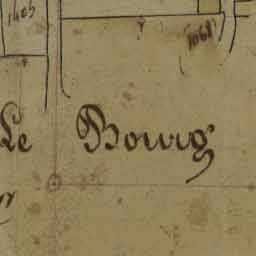 1405
1061
Le Bourg